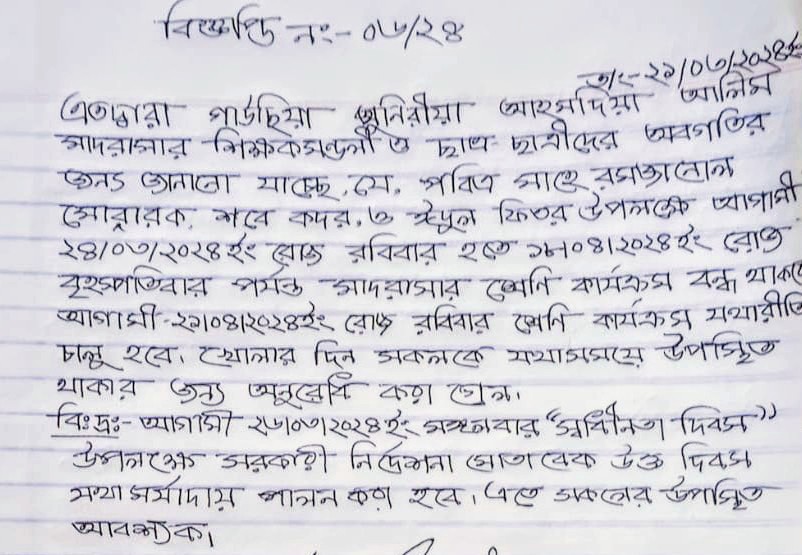 বিজ্ঞপ্তি নং:- ০৬/২৪
তাং:-২১/০৩/২০২৪ইং
এতদ্বারা পাউছিয়া মুনিরীয়া আহমদিয়া আলিম
মাদরাসার শিক্ষকমন্ডলী ও ছাত্র-ছাত্রীদের অবগতির
জন্য জানানো যাচ্ছে, যে, পবিত্র মাহে রমজানোল
মোবারক, শবে কদর, ও ঈদুল ফিতর উপলক্ষে আগামী
২৪/০৩/২০২৪ইং রোজ রবিবার হতে ১৮/০৪/২০২৪ইং রোজ
বৃহস্পতিবার পর্যন্ত মাদরাসার শ্রেণি কার্যক্রম বন্ধ থাকবে
আগামী-২১/০৪/২০২৪ইং রোজ রবিবার শ্রেণি কার্যক্রম যথারীতি
চালু হবে। খোলার দিন সকলকে যথাসময়ে উপস্থিত
থাকার জন্য অনুরোধ করা গেল।
বিঃদ্রঃ- আগামী ২৬/০৩/২০২৪ইং মঙ্গলবার "স্বাধীনতা দিবস"
উপলক্ষে সরকারী নির্দেশনা মোতাবেক উক্ত দিবস
যথা মর্যাদায় পালন করা হবে। এতে সকলের উপস্থিত
আবশ্যক।